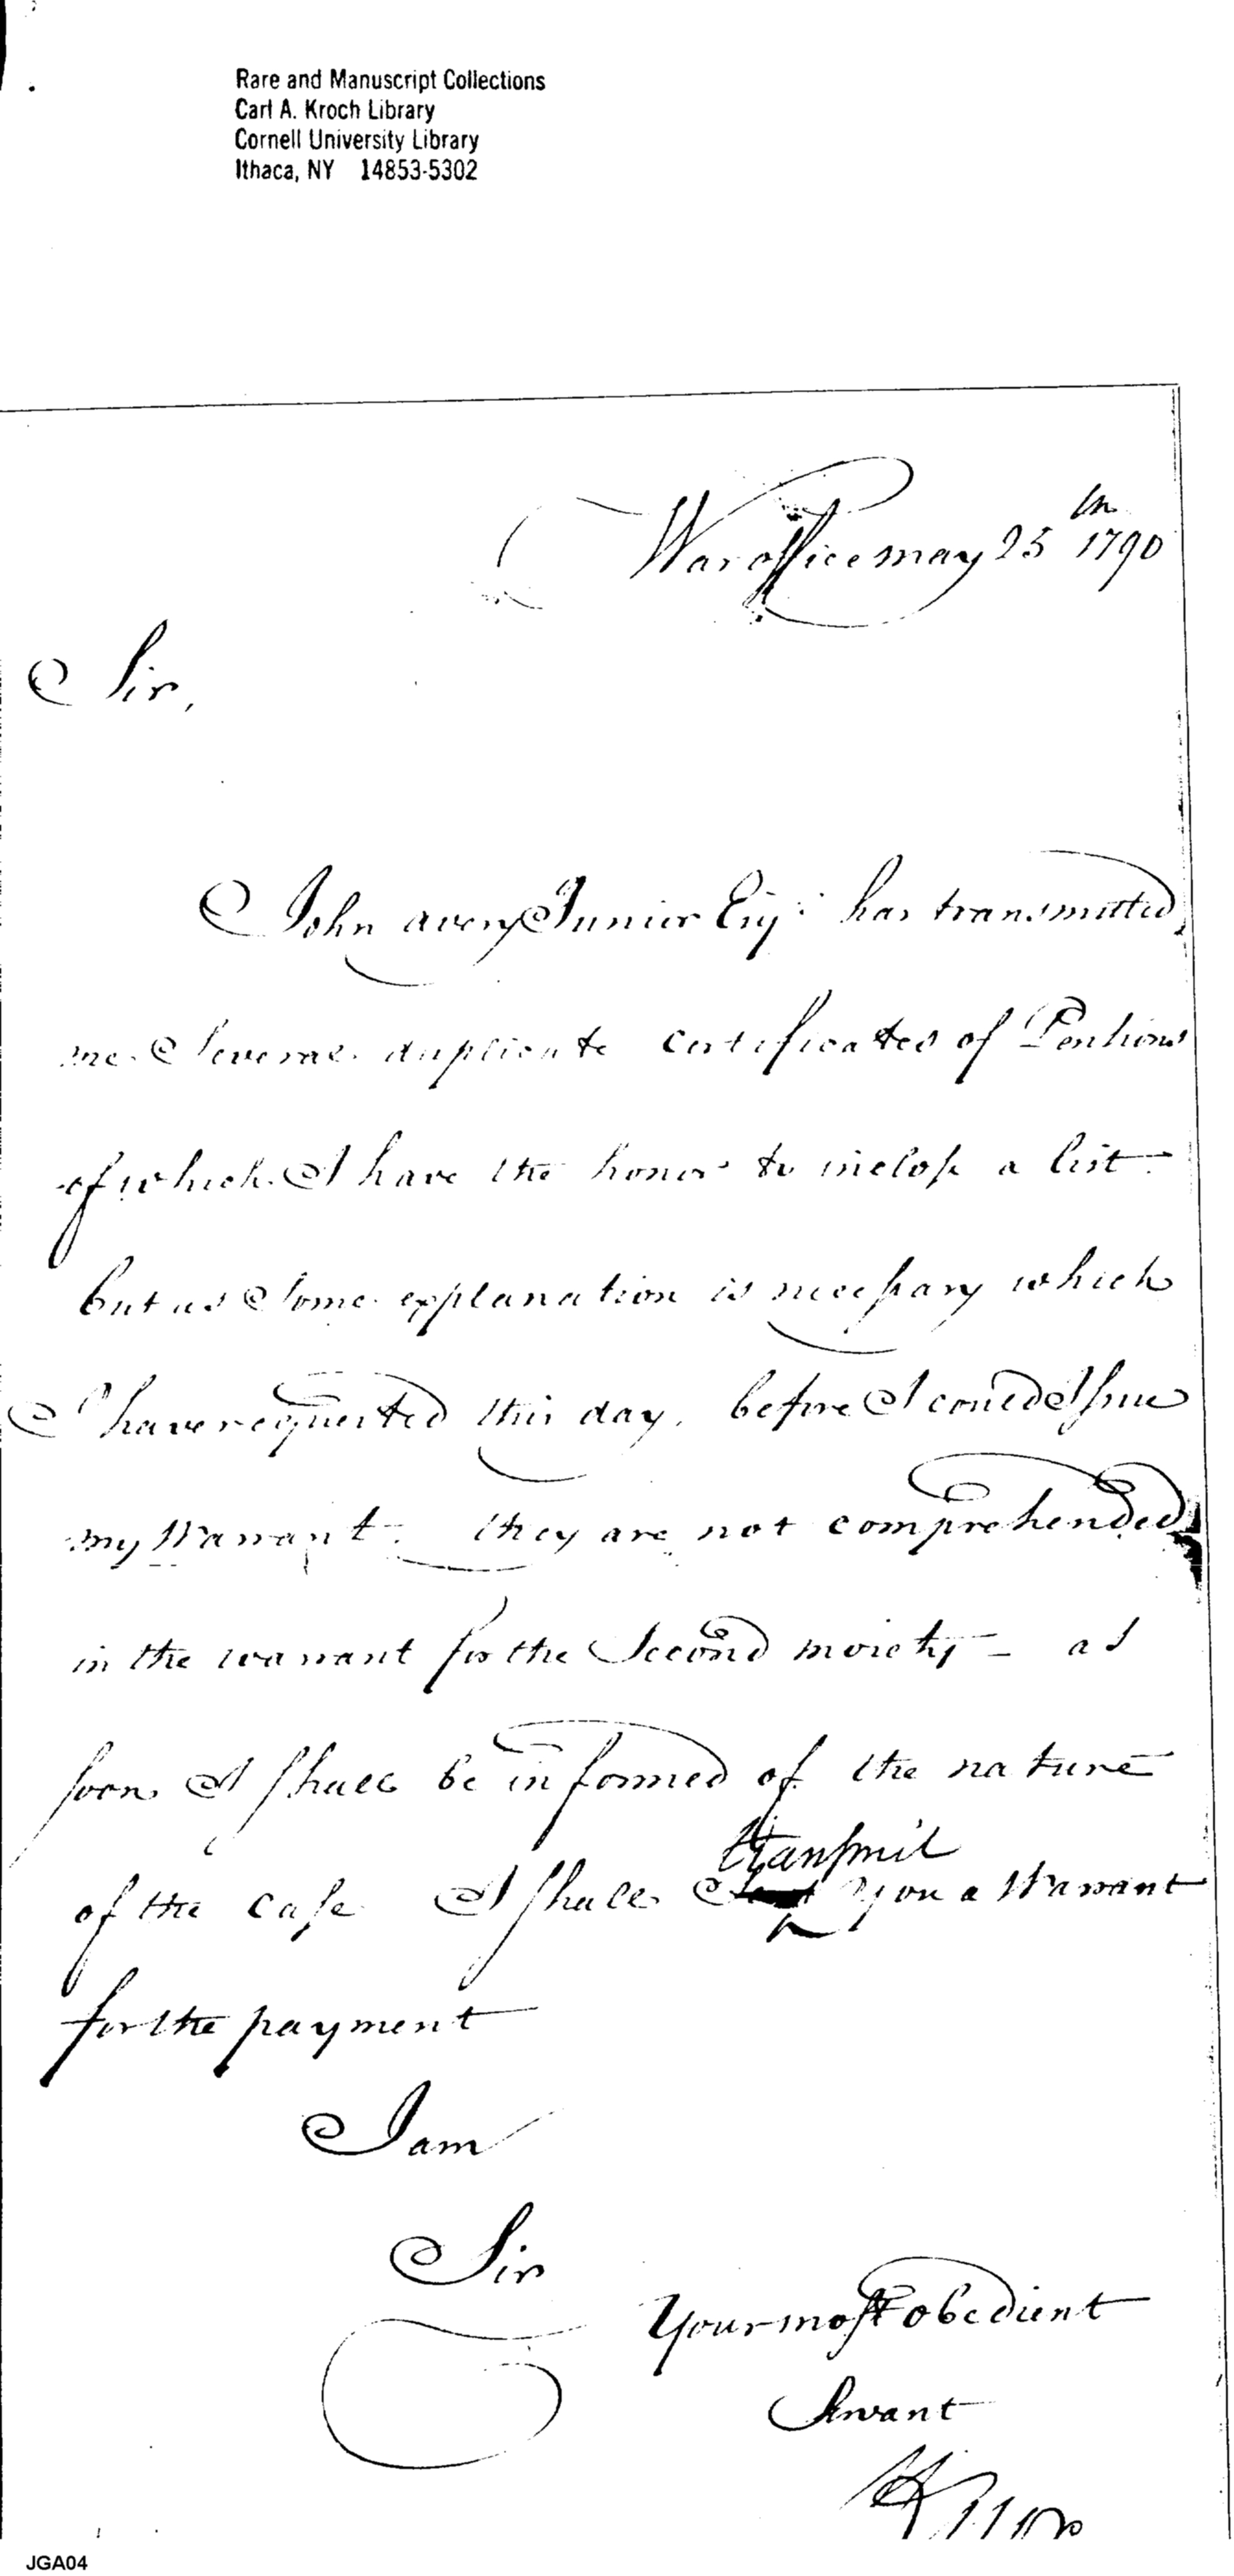 Rare and Manuscript Collections
Carl A. Kroch Library
Cornell University Library
Ithaca, NY 14853-5302
War office may 25th 1790
Sir,
John avery Junior Esqr: has transmitted
me Several duplicate certificates of Pentions
of which I have the honor to inclose a list
but as Some explanation is necessary which
I have requested this day, before I could Issue
my Warrant. they are not comprehended
in the warrant for the Second moiety – as
soon I shall be informed of the nature
transmit
of the case I shall you a Warrant
for the payment
I am
Sir
Your most obedient
Servant
HKnox
JGA04